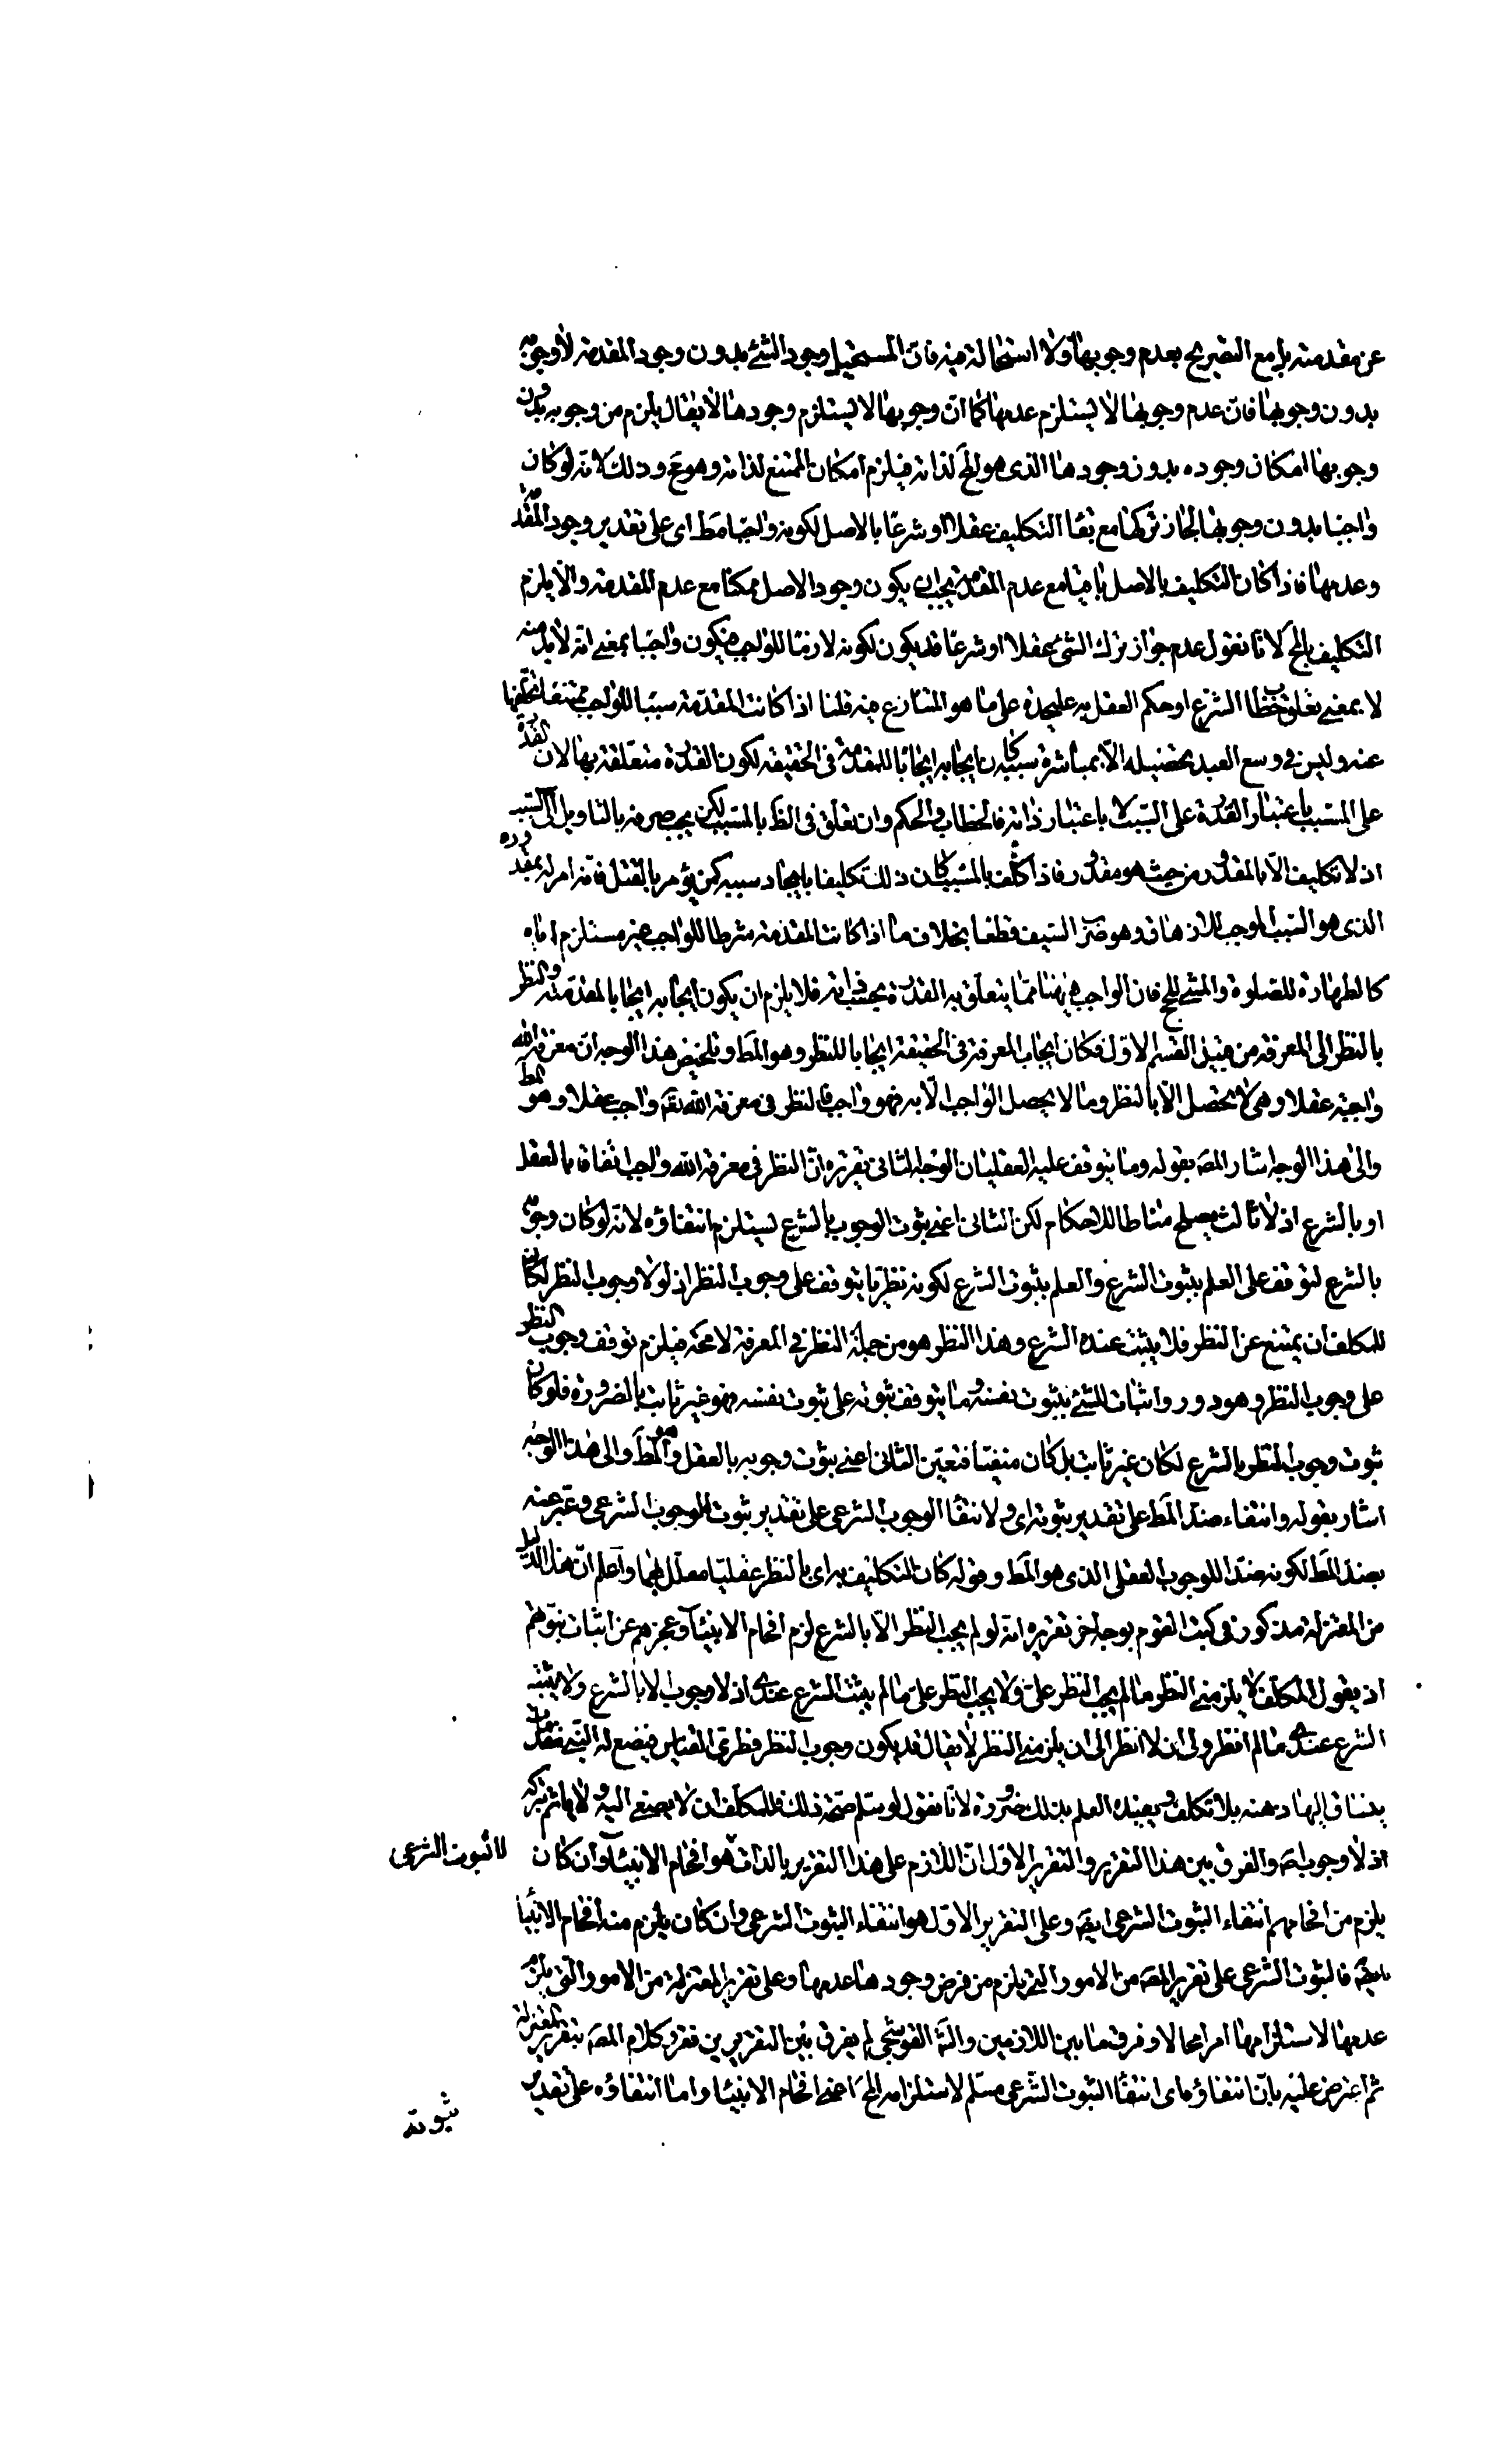 عن مقدمته بل مع التصريح بعدم وجوبها ولا استحالة فيه فان المستحيل وجود الشئ بدون وجود المقدمة لا وجوبه
بدون وجوبها فان عدم وجوبها لا يستلزم عدمها كما ان وجوبها لا يستلزم وجودها لا يقال يلزم من وجوبه بدون
وجوبها امكان وجوده بدون وجودها الذى هو المح لذاته فيلزم امكان الممتنع لذاته وهو مح وذلك لانه لو كان
واجبا بدون وجوبها لجاز تركها مع بقاء التكليف عقلا او شرعا بالاصل لكونه واجبا مط اى على تقدير وجود المقدمة
وعدمها فاذا كان التكليف بالاصل باقيا مع عدم المقدمة يجب ان يكون وجود الاصل ممكنا مع عدم المقدمة والا يلزم
التكليف بالمح لانا نقول عدم جواز ترك الشئ عقلا او شرعا قد يكون لكونه لازما للواجب فيكون واجبا بمعنى انه لا بد منه
لا بمعنى تعلق خطاب الشرع او حكم العقل به عليحدة على ما هو المتنازع فيه قلنا اذا كانت المقدمة سببا للواجب ممتنعا تخلفها
عنه وليس فى وسع العبد تحصيله الا بمباشرة سببه كان ايجابه ايجابا للمقدمة فى الحقيقة لكون القدرة متعلقة بها لان القدرة
على المسبب باعتبار القدرة على السبب لا باعتبار ذاته فالخطاب والحكم وان تعلق فى الظ بالمسبب لكن يجب صرفه بالتاويل الى السبب
اذ لا تكليف الا بالمقدور من حيث هو مقدور فاذا كلف بالمسبب كان ذلك تكليفا بايجاد سببه كمن يؤمر بالقتل فانه امر له بمقدوره
الذى هو السبب الموجب للازهاق وهو ضرب السيف قطعا بخلاف ما اذا كانت المقدمة شرطا للواجب غير مستلزم اياه
كالطهارة للصلوة والمشى للحج فان الواجب ههنا مما يتعلق به القدرة بحسب ذاته فلا يلزم ان يكون ايجابه ايجابا لمقدمته والنظر
بالنظر الى المعرفة من قبيل القسم الاول فكان ايجاب المعرفة فى الحقيقة ايجابا للنظر وهو المط وتلخيص هذا الوجه ان معرفة الله
واجبة عقلا وهى لا تحصل الا بالنظر وما لا يحصل الواجب الا به فهو واجب فالنظر فى معرفة الله تع واجب عقلا وهو المط
والى هذا الوجه اشار المص بقوله وما يتوقف عليه العقليان الوجه الثانى تقريره ان النظر فى معرفة الله واجب اتفاقا بالعقل
او بالشرع اذ لا ثالث يصلح مناطا للاحكام لكن الثانى اعنى ثبوت الوجوب بالشرع يستلزم انتفاؤه لانه لو كان وجوبه
بالشرع لتوقف على العلم بثبوت الشرع والعلم بثبوت الشرع لكونه نظريا يتوقف على وجوب النظر اذ لولا وجوب النظر لكان
للمكلف ان يمتنع عن النظر فلا يثبت عنده الشرع وهذا النظر هو من جملة النظر فى المعرفة لا محة فيلزم توقف وجوب النظر
على وجوب النظر وهو دور واثبات للشئ بثبوت نفسه وما يتوقف ثبوته على ثبوت نفسه فهو غير ثابت بالضرورة فلو كان
ثبوت وجوب النظر بالشرع لكان غير ثابت بل كان منفيا فتعين الثانى اعنى ثبوت وجوبه بالعقل وهو المط والى هذا الوجه
اشار بقوله وانتفاء ضد المط على تقدير ثبوته اى ولانتفاء الوجوب الشرعى على تقدير ثبوت الوجوب الشرعى وعبر عنه
بضد المط لكونه ضدا للوجوب العقلى الذى هو المط وقوله كان التكليف به اى بالنظر عقليا معلل بهما واعلم ان هذا الدليل
من المعتزلة مذكور فى كتب القوم بوجه اخر تقريره انه لو لم يجب النظر الا بالشرع لزم افحام الانبياء وعجزهم عن اثبات نبوتهم
اذ يقول المكلف لا يلزمنى النظر ما لم يجب النظر على ولا يجب النظر على ما لم يثبت الشرع عندى اذ لا وجوب الا بالشرع ولا يثبت
الشرع عندى ما لم انظر ولى ان لا انظر الى ان يلزمنى النظر لا يقال قد يكون وجوب النظر فطرى القياس فيضع له النبى مقدمات
ينساق اليها ذهنه بلا تكلف ويفيده العلم بذلك ضرورة لانا نقول لو سلم صحة ذلك فللمكلف ان لا يصغى اليه ولا ياثم بتركه
اذ لا وجوب اص والفرق بين هذا التقرير والتقرير الاول ان اللازم على هذا التقرير بالذات هو افحام الانبياء وان كان
لا الثبوت الشرعى
يلزم من افحامهم انتفاء الثبوت الشرعى ايض وعلى التقرير الاول هو انتفاء الثبوت الشرعى وان كان يلزم منه افحام الانبياء
ايض فالثبوت الشرعى على تقرير المص من الامور التى يلزم من فرض وجودها عدمها وعلى تقرير المعتزلة من الامور التى يلزم
عدمها لاستلزامها امرا محالا وفرق ما بين اللازمين والش القوشجى لم يفرق بين التقريرين فقرر كلام المص بتقرير المعتزلة
ثم اعترض عليه بان انتفاؤه اى انتفاء الثبوت الشرعى مسلم لاستلزامه المح اعنى افحام الانبياء واما انتفاؤه على تقدير
ثبوته